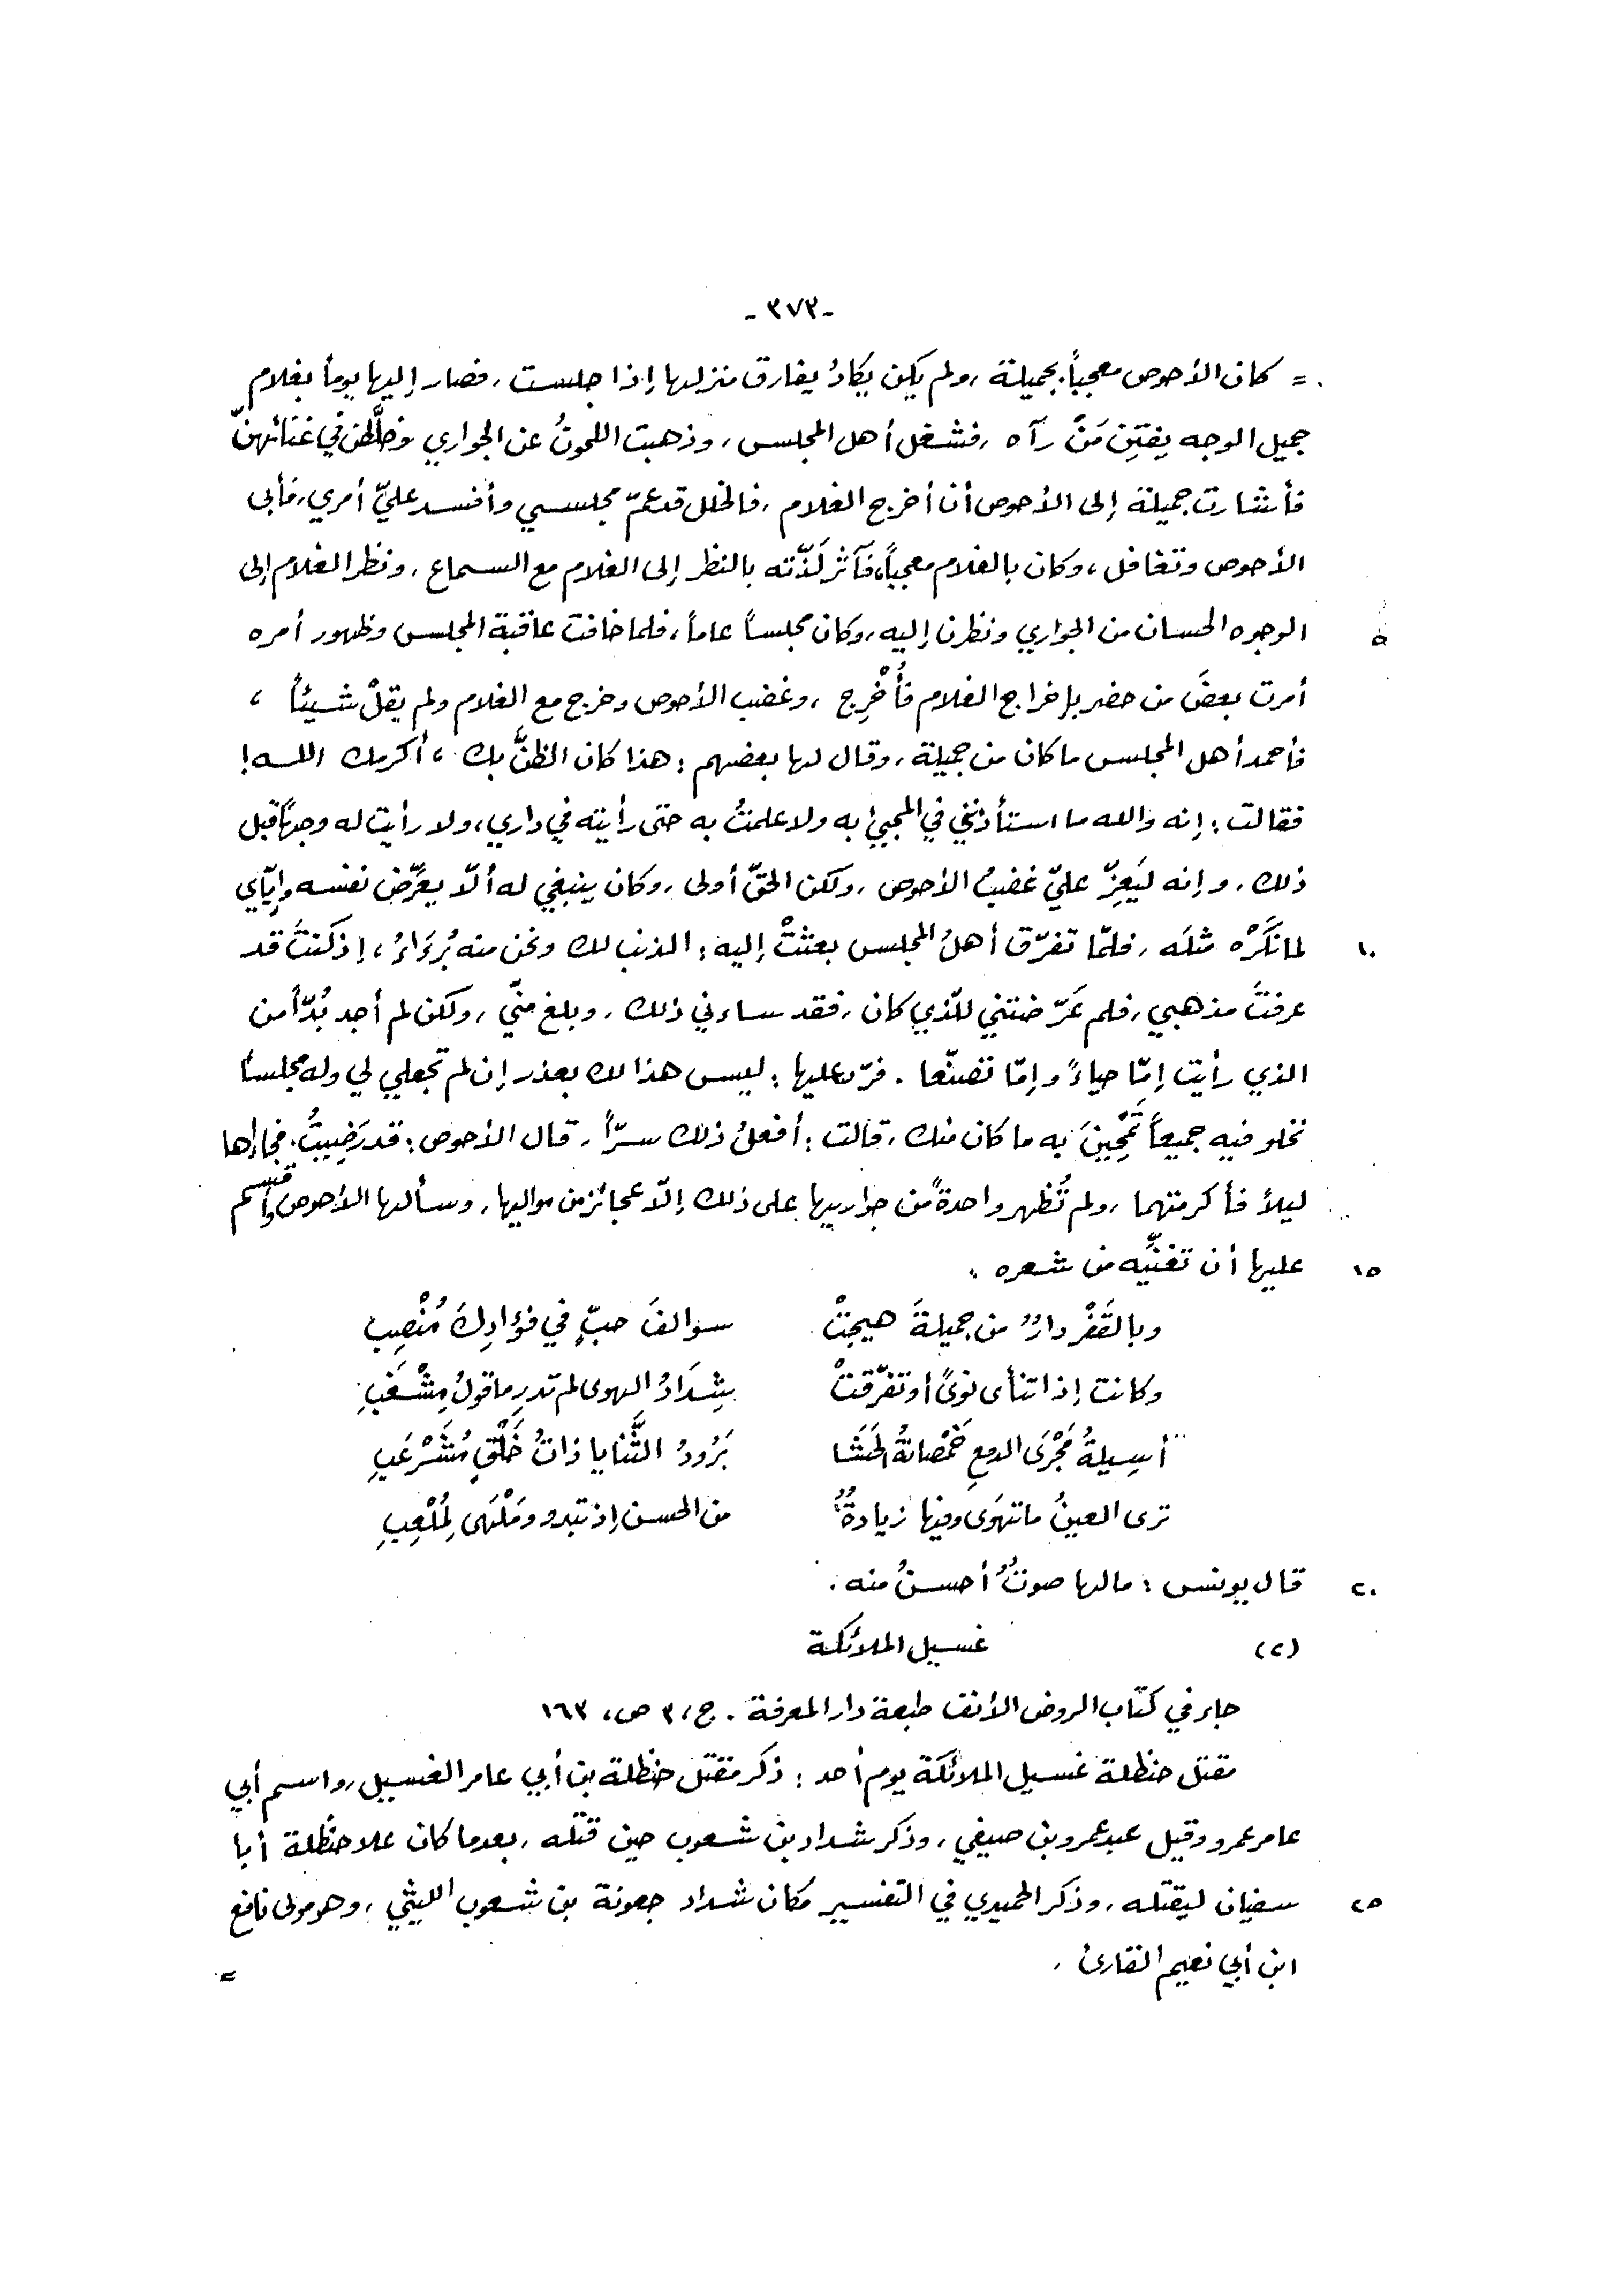 -٣٧٣-
= كان الأحوص معجباً بجميلة، ولم يكن يكادُ يفارق منزلها إذا جلست، فصار إليها يوماً بغلام
جميل الوجه يفتِن مَنْ رآه، فشغل أهل المجلس، وذهبت اللحونُ عن الجواري وخلَّطن في غنائهنّ
فأشارت جميلة إلى الأحوص أن أخرج الغلام، فالخلل قد عمّ مجلسي وأفسد عليّ أمري، فأبى
الأحوص وتغافل، وكان بالغلام معجباً، فآثر لَذّته بالنظر إلى الغلام مع السماع، ونظر الغلام إلى
٥ الوجوه الحسان من الجواري ونظرن إليه، وكان مجلساً عاماً، فلما خافت عاقبة المجلس وظهور أمره
أمرت بعضَ من حضر بإخراج الغلام فأُخْرِج، وغضب الأحوص وخرج مع الغلام ولم يقلْ شيئاً،
فأحمد أهل المجلس ما كان من جميلة، وقال لها بعضهم: هذا كان الظنَّ بك، أكرمك الله!
فقالت: إنه والله ما استأذنني في المجيئ به ولا علمتُ به حتى رأيته في داري، ولا رأيت له وجهاً قبل
ذلك، وإنه ليَعِزّ عليّ غضبُ الأحوص، ولكن الحقّ أولى، وكان ينبغي له ألّا يعرِّض نفسه وإيّاي
١٠ لما نكَرْه مثلَه، فلمّا تفرّق أهلُ المجلس بعثتْ إليه: الذنب لك ونحن منه بُرَءَاءُ، إذ كنتَ قد
عرفتَ مذهبي، فلم عَرّضتني للّذي كان، فقد ساءني ذلك، وبلغ منّي، ولكن لم أجد بُدّاً من
الذي رأيت إمّا حياءً وإمّا تصنّعا. فردّ عليها: ليس هذا لك بعذر إن لم تجعلي لي وله مجلساً
نخلو فيه جميعاً تَمْحِينَ به ما كان منك، قالت: أفعلُ ذلك سرّاً، قال الأحوص: قد رَضِيتُ، فجاءاها
ليلاً فأكرمتهما، ولم تُظهر واحدةً من جواريها على ذلك إلّا عجائز من مواليها، وسألها الأحوص وأقسم
١٥ عليها أن تغنّيَه من شعره.
وبالقَفْر دارٌ من جميلةَ هيجتْ سوالفَ حبّ في فؤادِكَ مُنْصِبِ
وكانت إذا تنأى نوىً أو تفرّقتْ شِدَادُ الهوى لم تدرِ ما قولُ مِشْغَبِ
أسِيلةُ مَجْرَى الدمعِ خَمْصَانةُ الحَشَا بَرُودُ الثَّنايا ذاتُ خَلْقٍ مُشَرْعَبِ
ترى العينُ ما تهوَى وفيها زيادةٌ من الحسن إذ تبدو ومَلْهَى لِمُلْعِبِ
٢٠ قال يونس: مالها صوتٌ أحسنُ منه.
(٢) غسيل الملائكة
جاء في كتاب الروض الأنف طبعة دار المعرفة. ج، ٣ ص، ١٦٣
مقتل حنظلة غسيل الملائكة يوم أحد: ذكر مقتل حنظلة بن أبي عامر الغسيل، واسم أبي
عامر عمرو وقيل عبد عمرو بن صيفي، وذكر شداد بن شعوب حين قتله، بعدما كان علا حنظلة أبا
٢٥ سفيان ليقتله، وذكر الحميدي في التفسير مكان شداد جعونة بن شعوب الليثي، وهو مولى نافع
ابن أبي نعيم القارئ. =